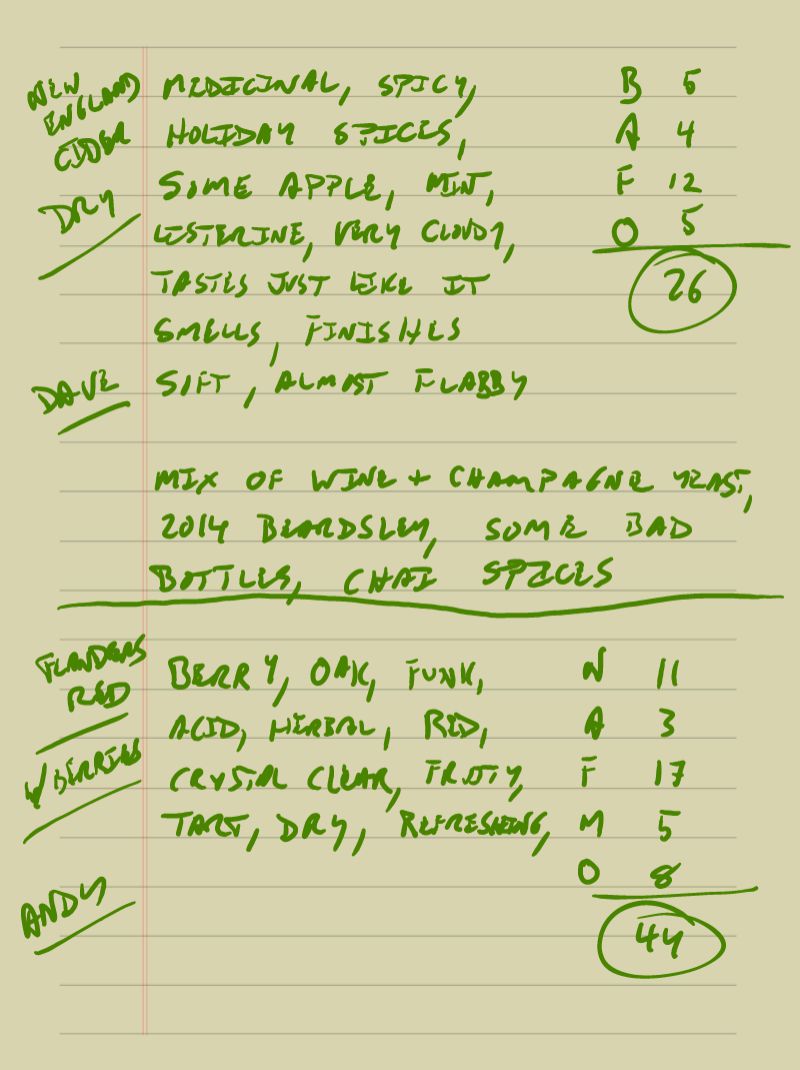 NEW ENGLAND CIDER
DRY
DAVE
MEDICINAL, SPICY, B 5
HOLIDAY SPICES, A 4
SOME APPLE, MINT, F 12
LISTERINE, VERY CLOUDY, O 5
TASTES JUST LIKE IT 26
SMELLS, FINISHES
SOFT, ALMOST FLABBY
MIX OF WINE + CHAMPAGNE YEAST,
2014 BEARDSLEY, SOME BAD
BOTTLES, CHAI SPICES
FLANDERS RED
W/ BERRIES
ANDY
BERRY, OAK, FUNK, N 11
ACID, HERBAL, RED, A 3
CRYSTAL CLEAR, FRUITY, F 17
TART, DRY, REFRESHING, M 5
O 8
44